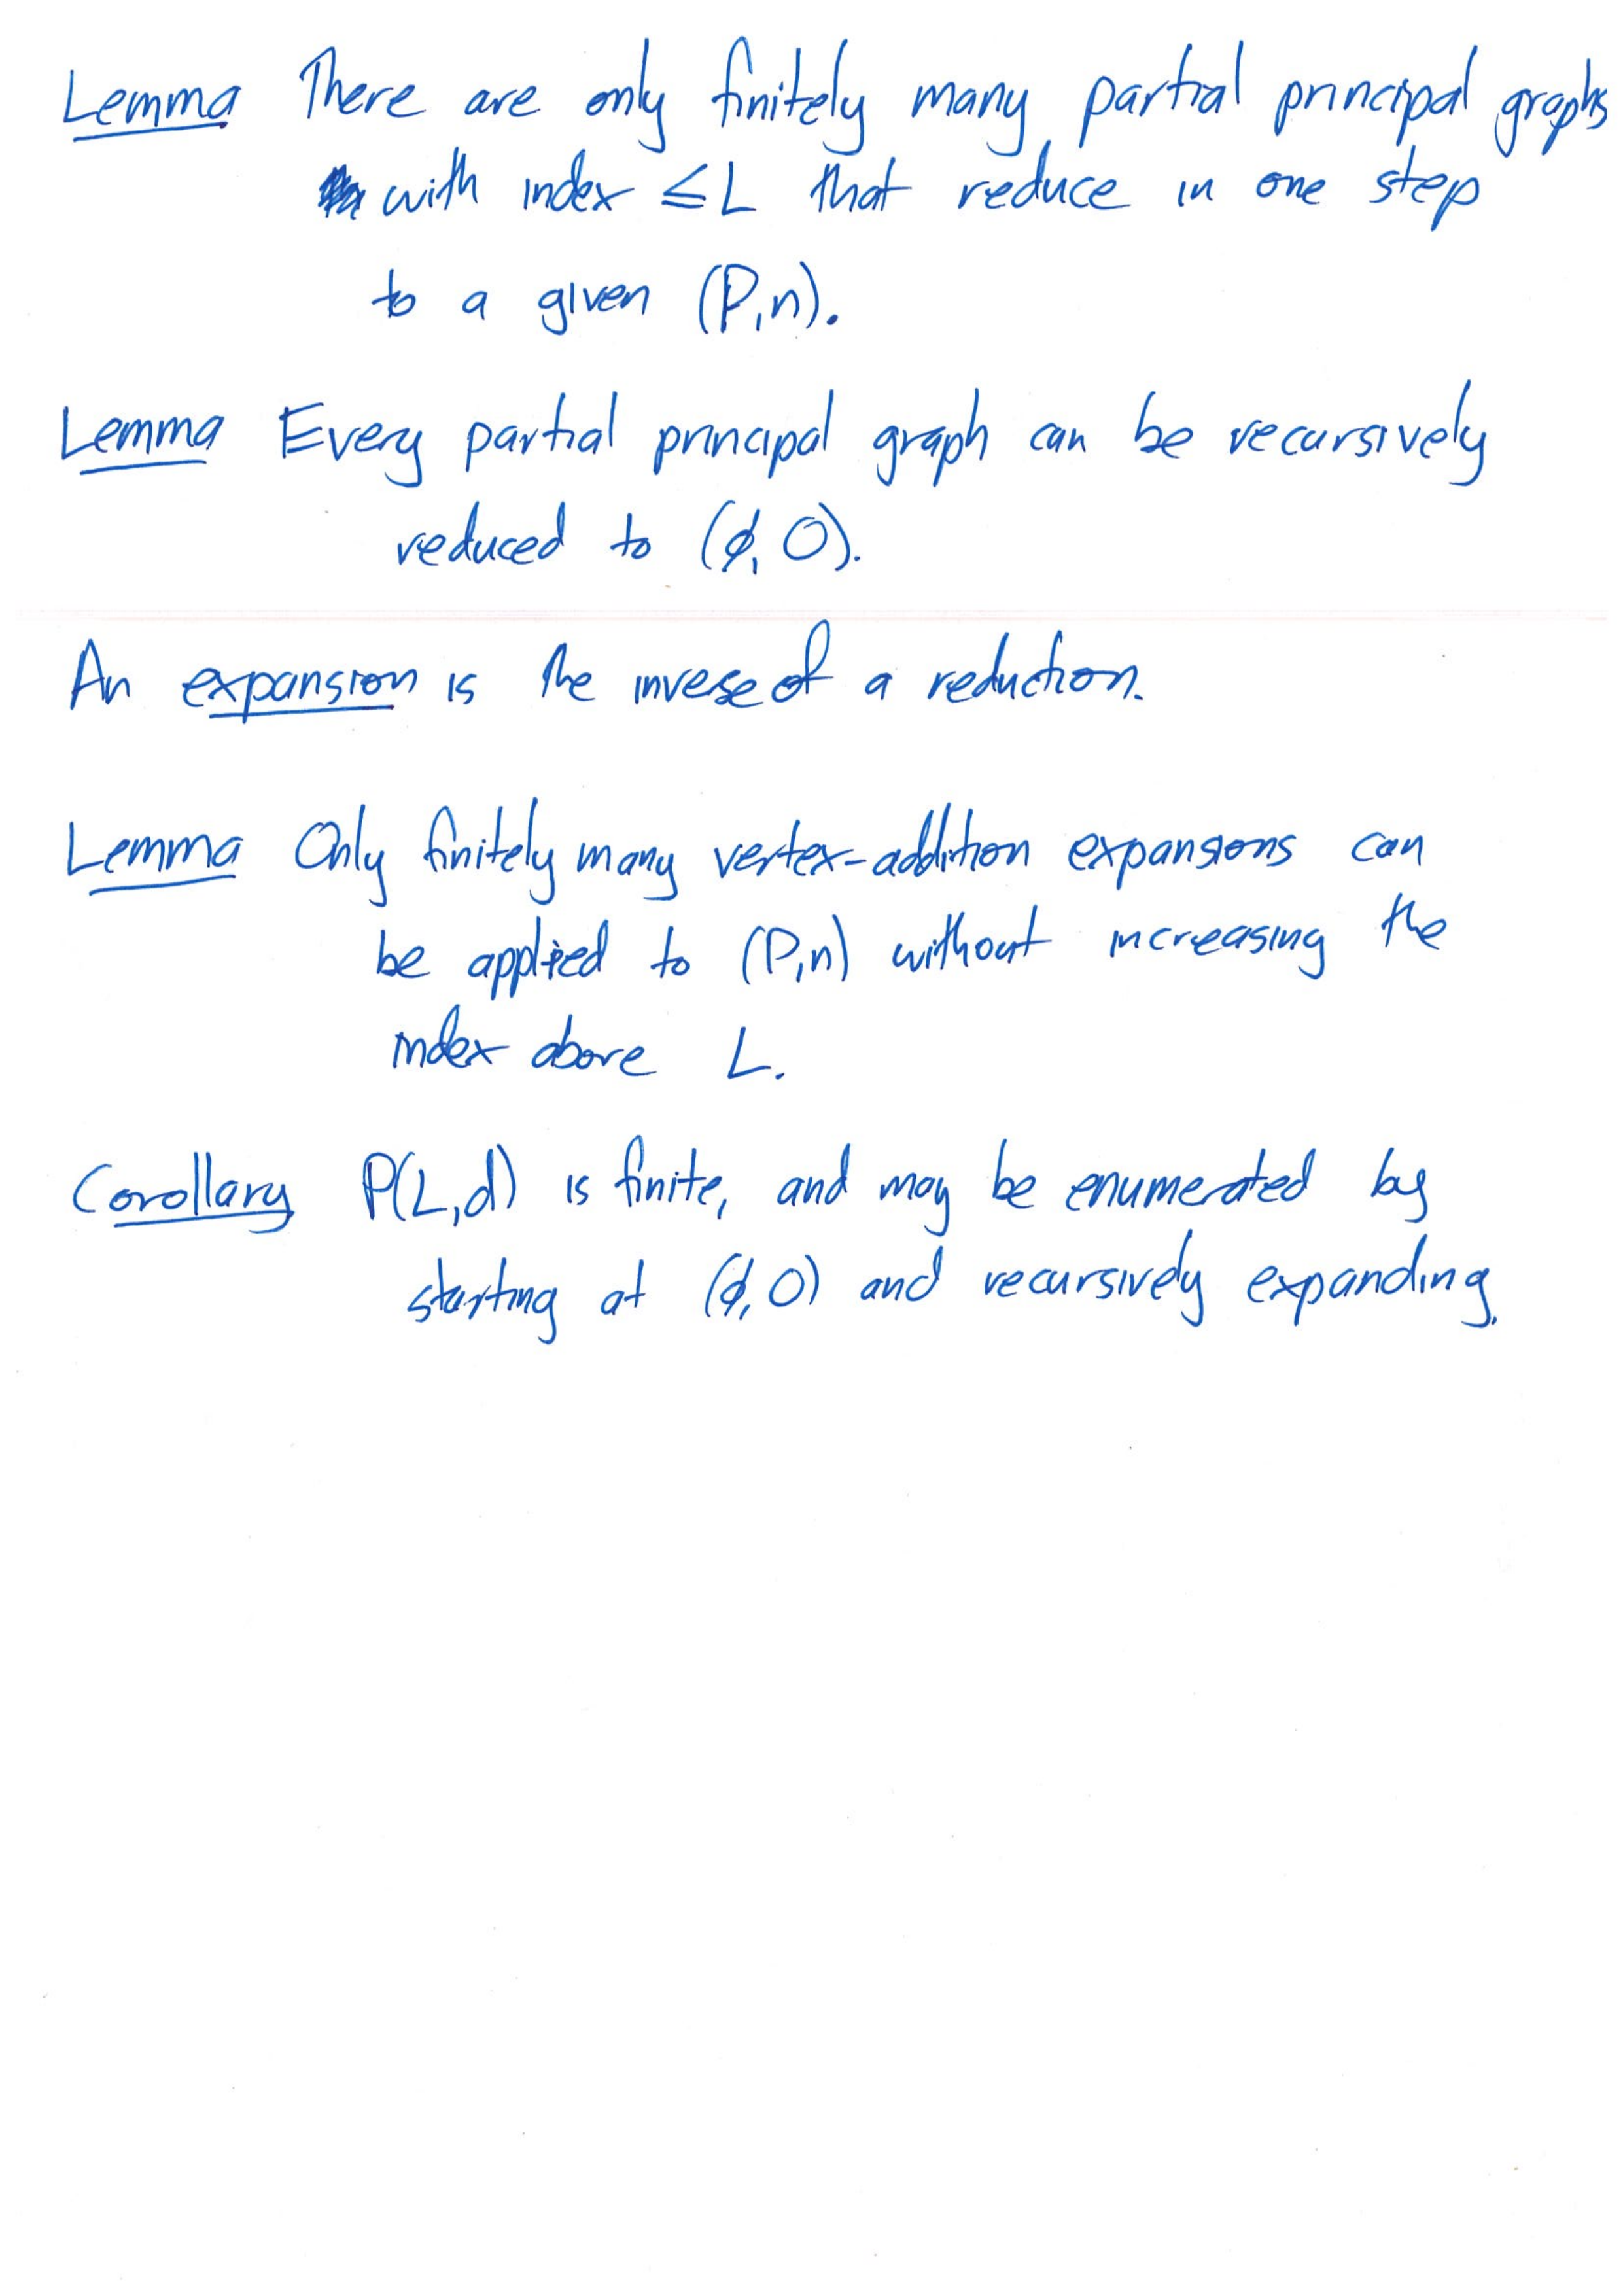 Lemma There are only finitely many partial principal graphs
with index ≤ L that reduce in one step
to a given (P,n).
Lemma Every partial principal graph can be recursively
reduced to (ϕ, 0).
An expansion is the inverse of a reduction.
Lemma Only finitely many vertex-addition expansions can
be applied to (P,n) without increasing the
index above L.
Corollary P(L,d) is finite, and may be enumerated by
starting at (ϕ, 0) and recursively expanding.